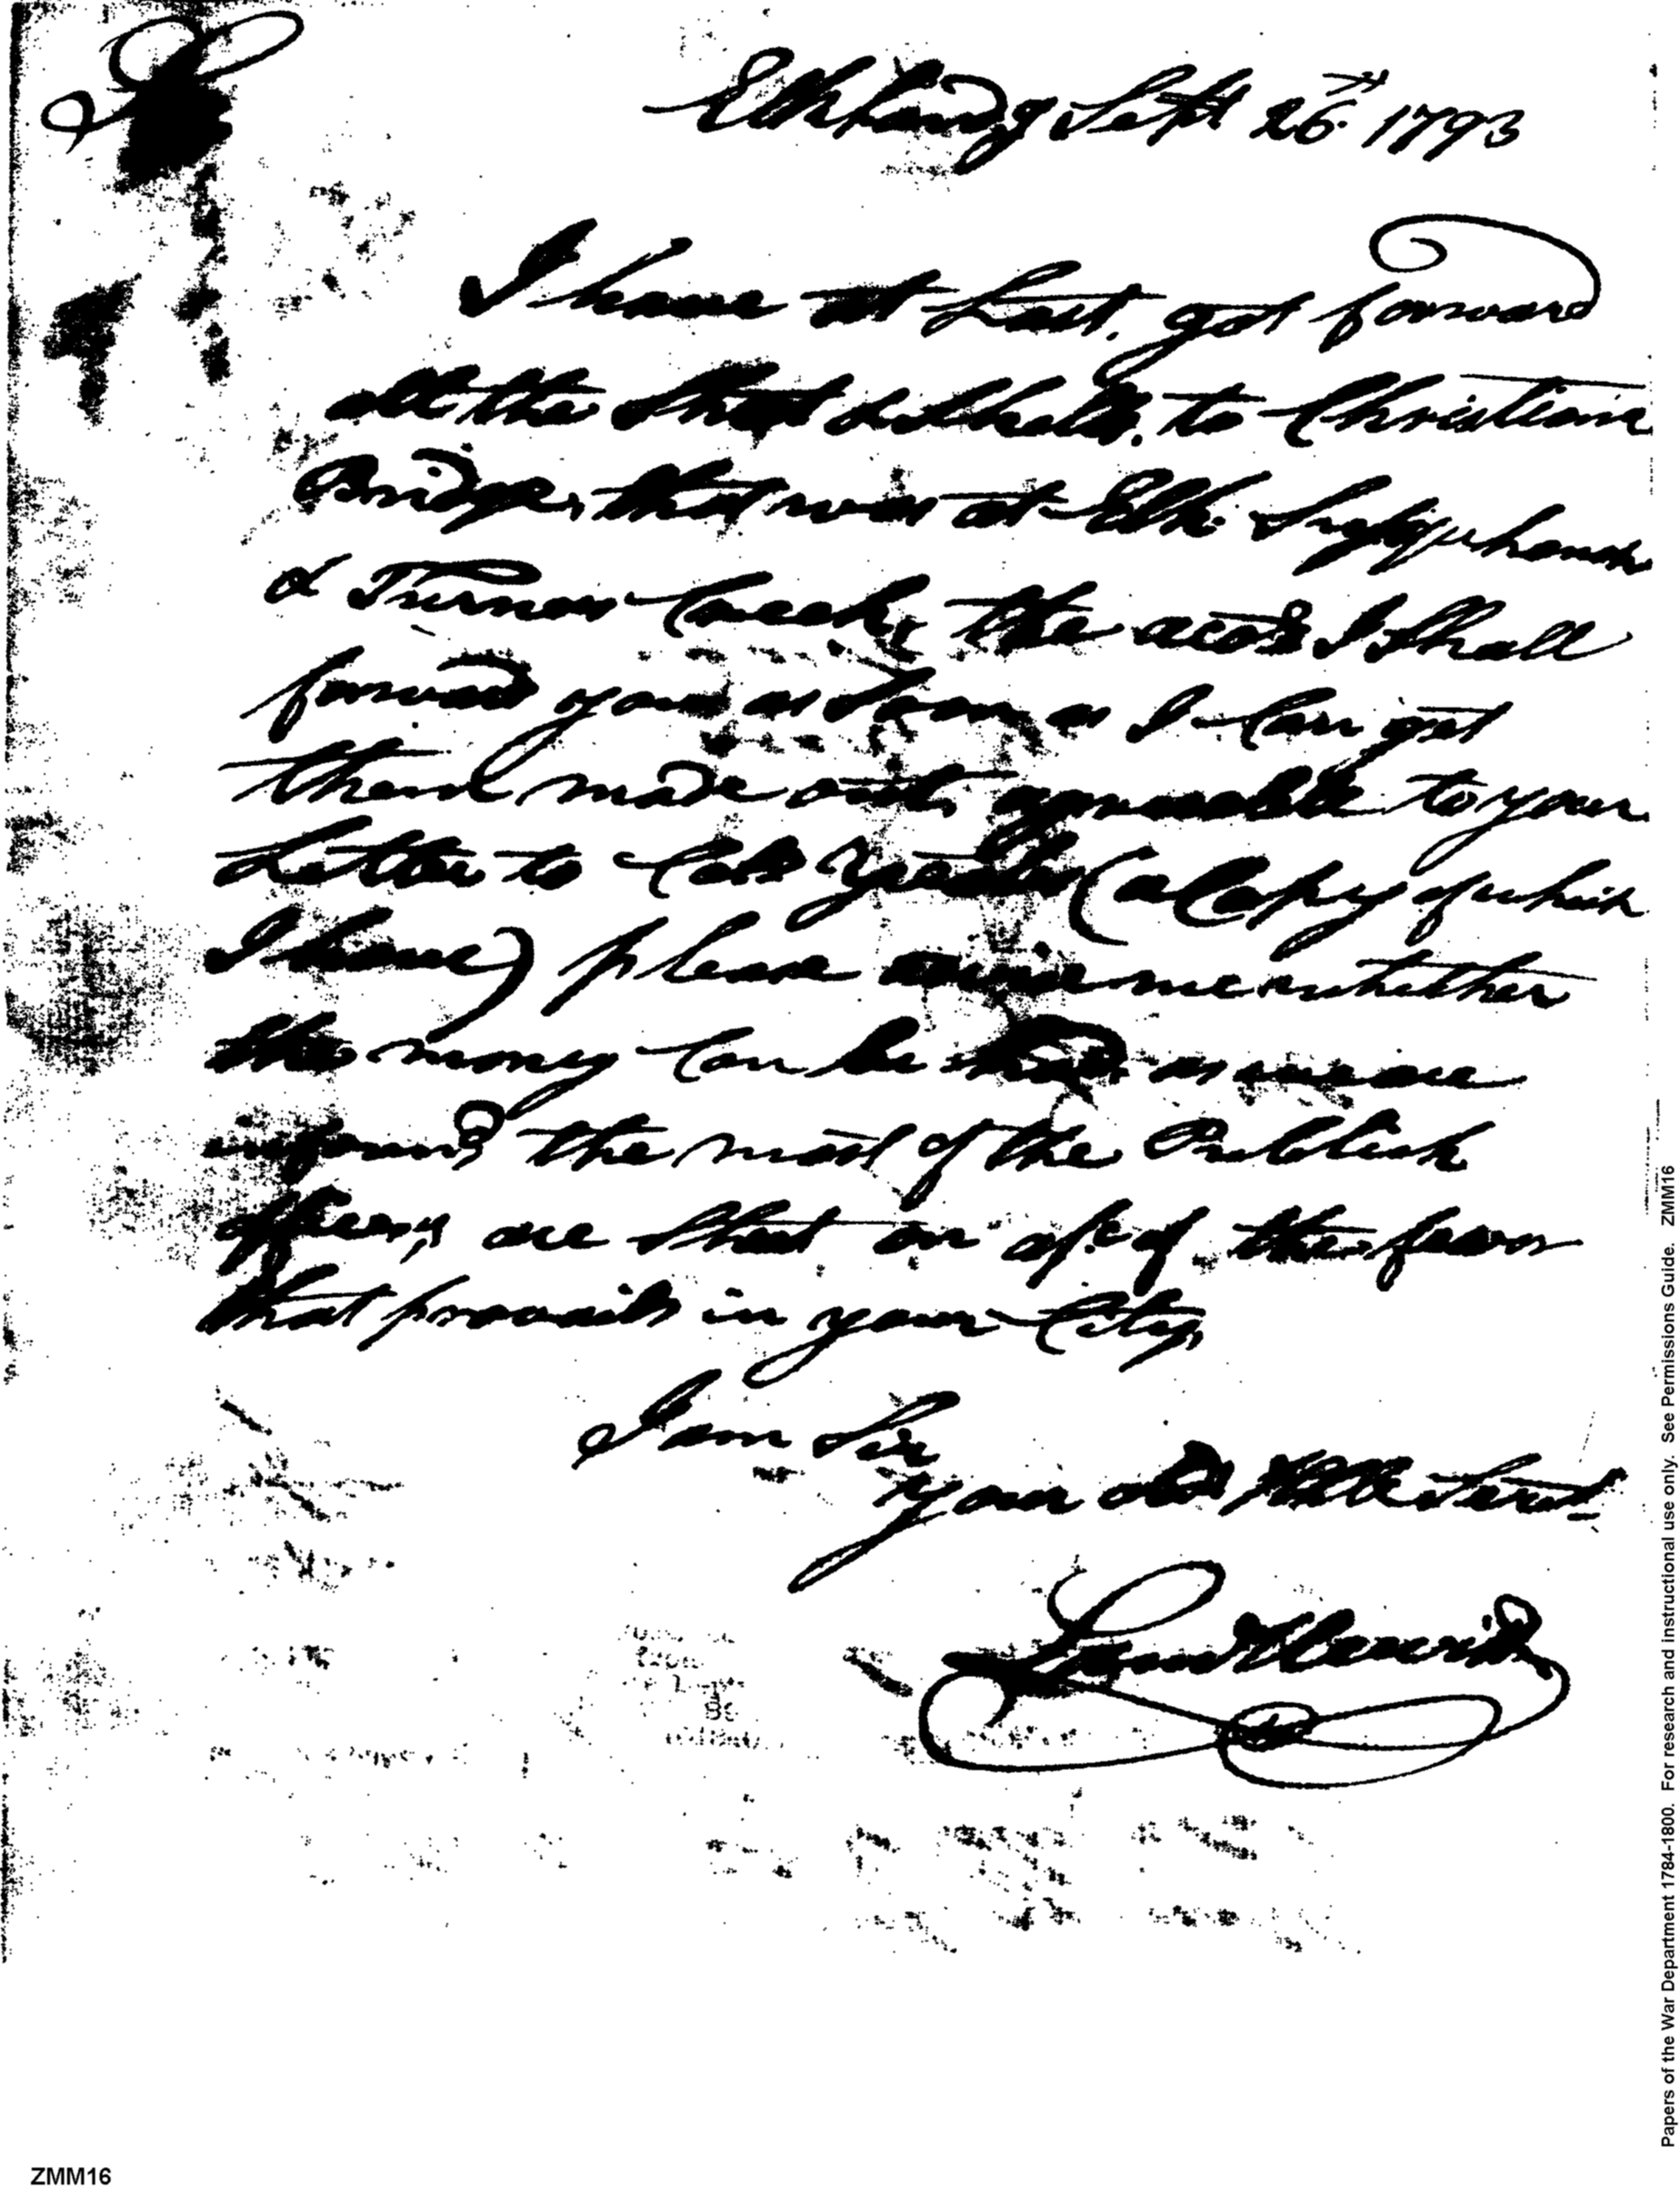 Sir
Elk Landg Sept 26th 1793
I have at Last, got forward
all the Shot & Shells, to Christiana
Bridge, that was at Elk. Susquehanah
& Turner Creek, the accots I Shall
forward you as Soon as I Can get
them made out, agreeable to your
Letter to Cols (a Copy of which
I have) please me whether
the money Can be had as we are
inform'd the most of the Publick
offices, are Shut on a/c of the fever
that prevails in your City,
I am Sir
Your obt Hble Servt
ZMM16
Papers of the War Department 1784-1800. For research and instructional use only. See Permissions Guide. ZMM16